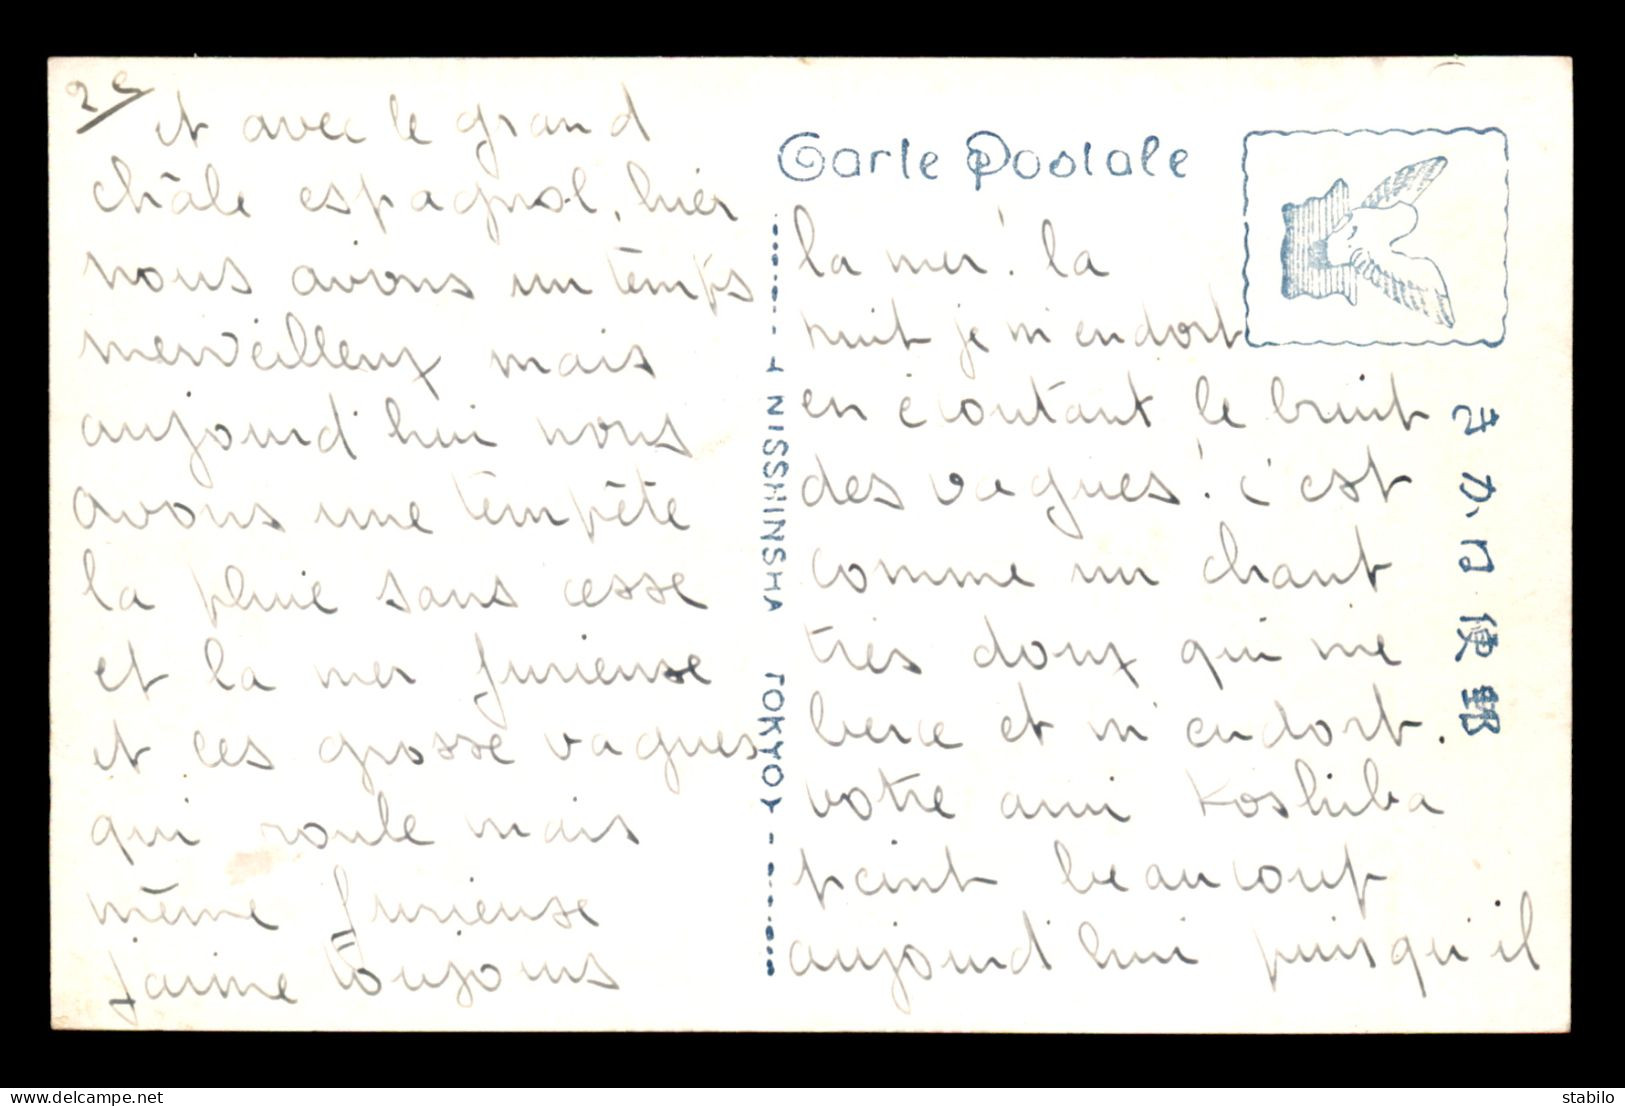 25
et avec le grand
châle espagnol, hier
nous avions un temps
merveilleux mais
aujourd'hui nous
avons une tempête
la pluie sans cesse
et la mer furieuse
et ces grosse vagues
qui roule mais
même furieuse
j'aime toujours
Carte Postale
la mer! la
nuit je m'endort
en écoutant le bruit
des vagues! c'est
comme un chant
très doux qui me
berce et m'endort.
votre ami Koshiba
peint beaucoup
aujourd'hui puisqu'il
NISSHINSHA TOKYO
郵便はかき
Delcampe.net
stabilo